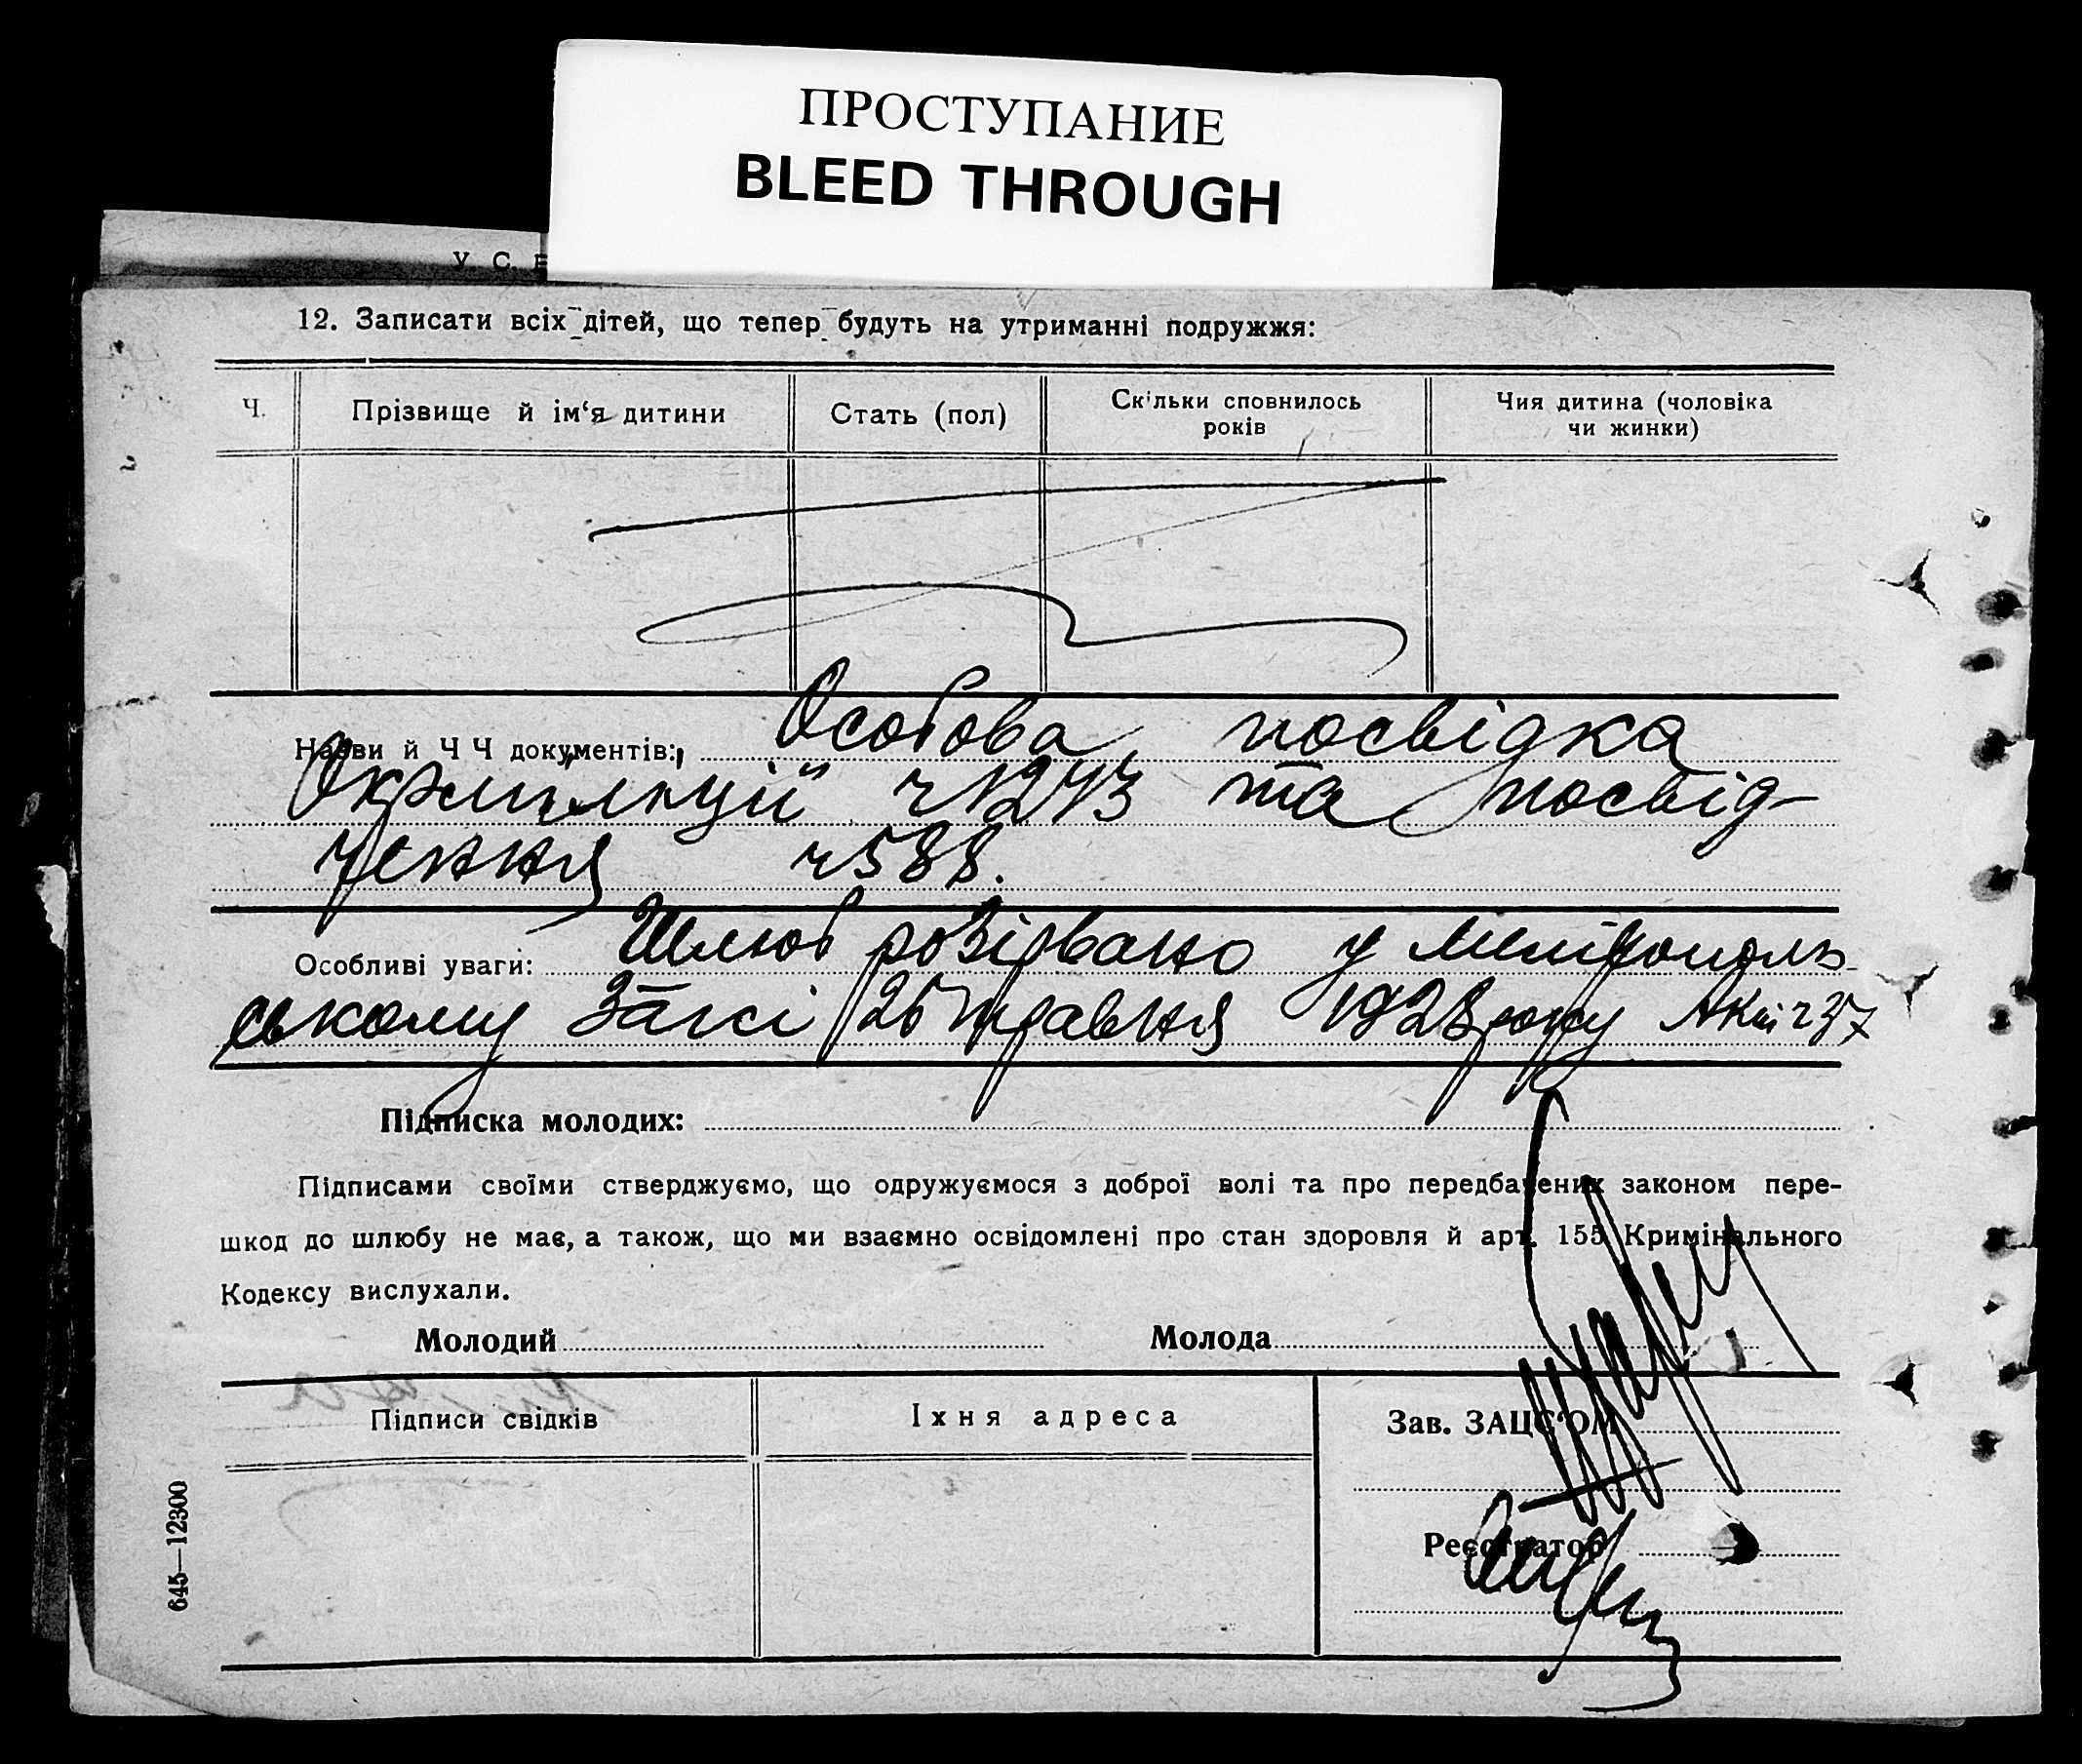 ПРОСТУПАНИЕ
BLEED THROUGH
У. С.
12. Записати всіх дітей, що тепер будуть на утриманні подружжя:
Ч.
Прізвище й ім‘я дитини
Стать (пол)
Скільки сповнилось
років
Чия дитина (чоловіка
чи жинки)
Назви й ЧЧ документів: Особова посвідка
Окрміліції ч 1243 та посвід-
чення ч 588.
Особливі уваги: Шлюб розірвано у Мелітополь
ському Загсі 26 травня 1928 року Акт ч 37
Підписка молодих:
Підписами своїми стверджуємо, що одружуємося з доброї волі та про передбачених законом пере-
шкод до шлюбу не має, а також, що ми взаємно освідомлені про стан здоровля й арт. 155 Кримінального
Кодексу вислухали.
Молодий
Молода
Підписи свідків
Їхня адреса
Зав. ЗАЦС‘ОМ
Реєстратор
645—12300